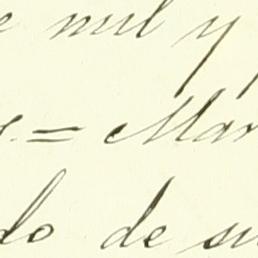 mil y
= Mar
do de su